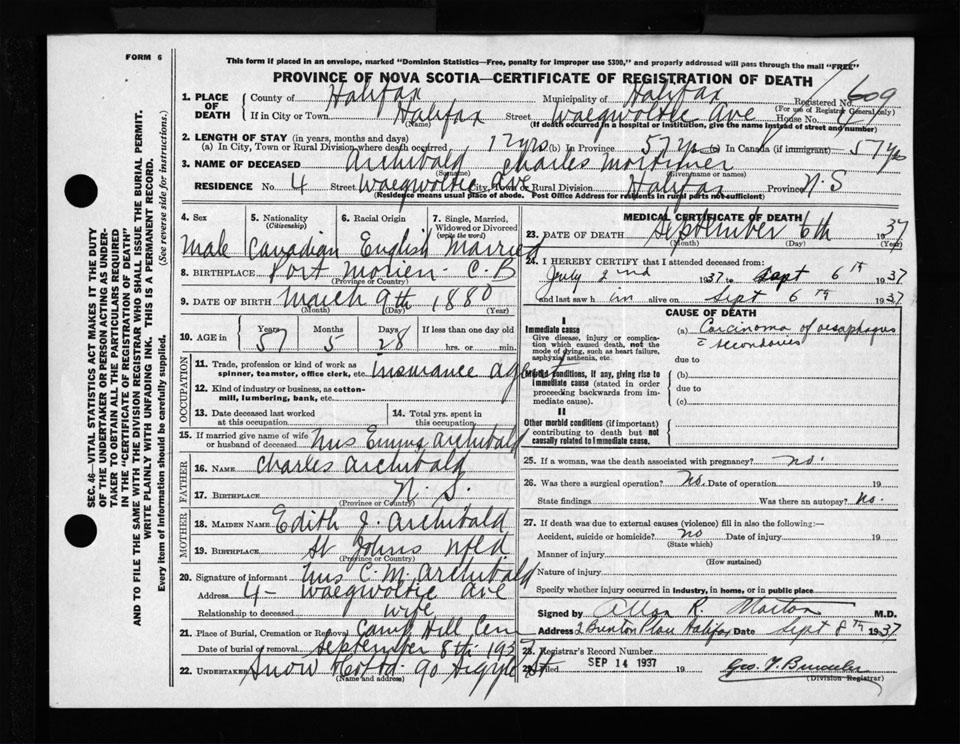 FORM 6
This form if placed in an envelope, marked "Dominion Statistics—Free, penalty for improper use $300," and properly addressed will pass through the mail "FREE"
PROVINCE OF NOVA SCOTIA—CERTIFICATE OF REGISTRATION OF DEATH
SEC. 46—VITAL STATISTICS ACT MAKES IT THE DUTY
OF THE UNDERTAKER OR PERSON ACTING AS UNDER-
TAKER TO OBTAIN ALL THE PARTICULARS REQUIRED
IN THE "CERTIFICATE OF REGISTRATION OF DEATH"
AND TO FILE THE SAME WITH THE DIVISION REGISTRAR WHO SHALL ISSUE THE BURIAL PERMIT.
WRITE PLAINLY WITH UNFADING INK. THIS IS A PERMANENT RECORD.
Every item of information should be carefully supplied. (See reverse side for instructions.)
1. PLACE OF DEATH
County of Halifax Municipality of Halifax Registered No. 609
(For use of Registrar General only)
If in City or Town Halifax Street Waegwoltic Ave House No. 4
(Name) (If death occurred in a hospital or institution, give the name instead of street and number)
2. LENGTH OF STAY (in years, months and days)
(a) In City, Town or Rural Division where death occurred 17 yrs (b) In Province 57 yrs (c) In Canada (if immigrant) 57 yrs
3. NAME OF DECEASED Archibald Charles Mortimer
(Surname) (Given name or names)
RESIDENCE No. 4 Street Waegwoltic Ave City, Town or Rural Division Halifax Province N.S
(Residence means usual place of abode. Post Office Address for residents in rural parts not sufficient)
4. Sex 5. Nationality (Citizenship) 6. Racial Origin 7. Single, Married, Widowed or Divorced (write the word)
Male Canadian English Married
8. BIRTHPLACE Port Morien - C.B
(Province or Country)
9. DATE OF BIRTH March 9th 1880
(Month) (Day) (Year)
10. AGE in Years Months Days If less than one day old
57 5 28 hrs. or min.
OCCUPATION
11. Trade, profession or kind of work as
spinner, teamster, office clerk, etc. Insurance agent
12. Kind of industry or business, as cotton-
mill, lumbering, bank, etc.
13. Date deceased last worked at this occupation 14. Total yrs. spent in this occupation
15. If married give name of wife
or husband of deceased Mrs Emma Archibald
FATHER
16. NAME Charles Archibald
17. BIRTHPLACE N.S.
(Province or Country)
MOTHER
18. MAIDEN NAME Edith J. Archibald
19. BIRTHPLACE St Johns Nfld
(Province or Country)
20. Signature of informant Mrs C. M. Archibald
Address 4 - Waegwoltic Ave
Relationship to deceased wife
21. Place of Burial, Cremation or Removal Camp Hill Cem
Date of burial or removal September 8th 1937
22. UNDERTAKER Snow & Co Ltd 90 Argyle St
(Name and address)
MEDICAL CERTIFICATE OF DEATH
23. DATE OF DEATH September 6th 1937
(Month) (Day) (Year)
24. I HEREBY CERTIFY that I attended deceased from:
July 2nd 1937 to Sept 6th 1937
and last saw him alive on Sept 6th 1937
CAUSE OF DEATH
I
Immediate cause
Give disease, injury or complica-
tion which caused death, not the
mode of dying, such as heart failure,
asphyxia, asthenia, etc.
(a) Carcinoma of oesophagus
c secondaries
due to
Morbid conditions, if any, giving rise to
immediate cause (stated in order
proceeding backwards from im-
mediate cause).
(b)
due to
(c)
II
Other morbid conditions (if important)
contributing to death but not
causally related to immediate cause.
25. If a woman, was the death associated with pregnancy? no.
26. Was there a surgical operation? No. Date of operation 19
State findings Was there an autopsy? No.
27. If death was due to external causes (violence) fill in also the following:—
Accident, suicide or homicide? no Date of injury 19
(State which)
Manner of injury
(How sustained)
Nature of injury
Specify whether injury occurred in industry, in home, or in public place
Signed by Allan R. Morton M.D.
Address Halifax Date Sept 8th 1937
28. Registrar's Record Number
29. Filed SEP 14 1937 19
(Division Registrar)